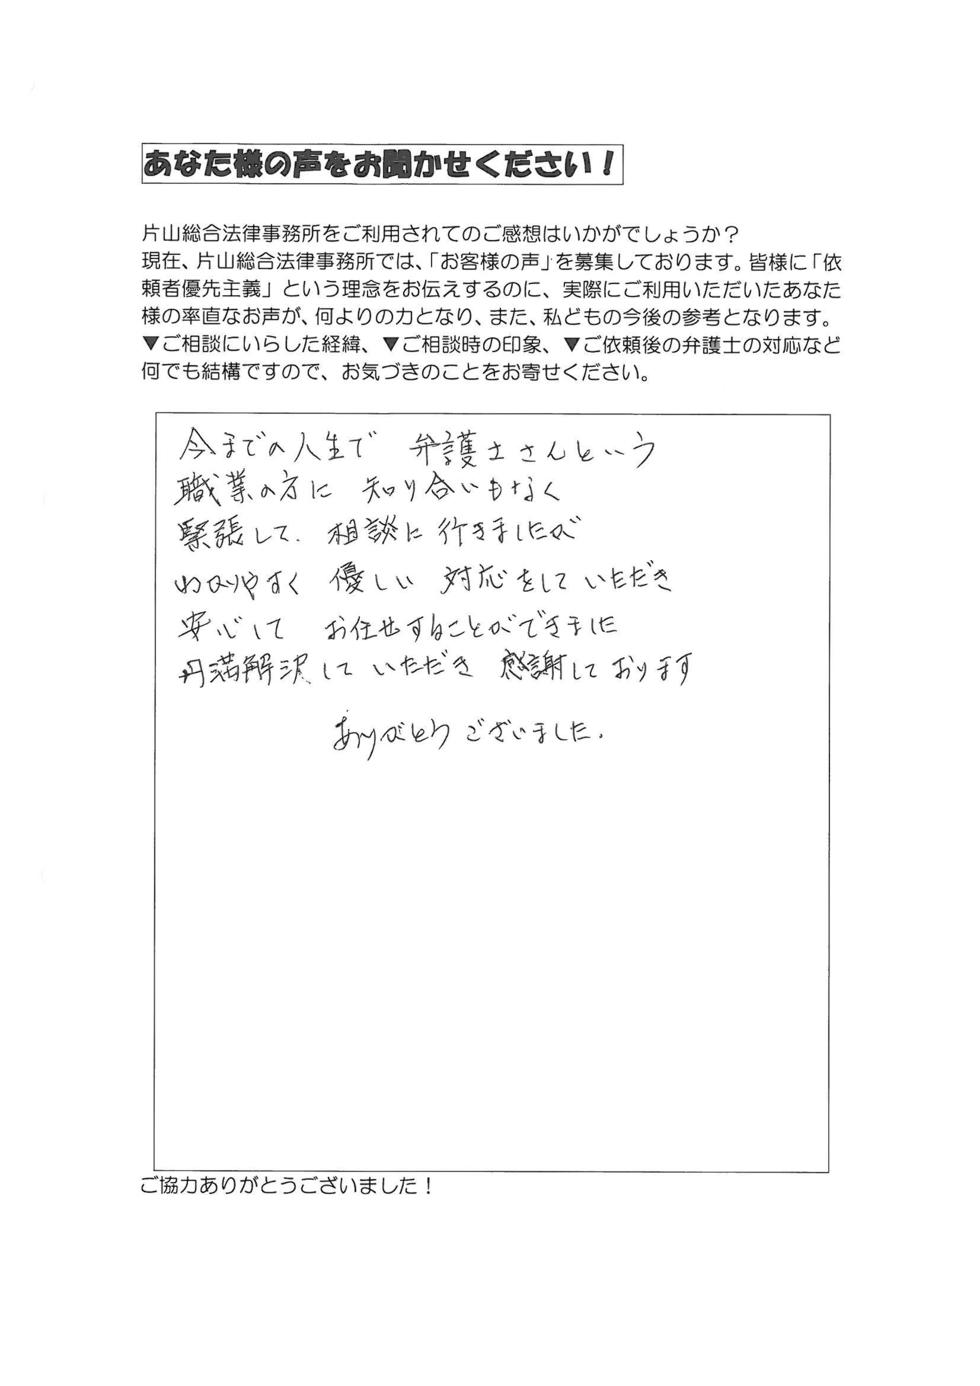 あなた様の声をお聞かせください！
片山総合法律事務所をご利用されてのご感想はいかがでしょうか？
現在、片山総合法律事務所では、「お客様の声」を募集しております。皆様に「依
頼者優先主義」という理念をお伝えするのに、実際にご利用いただいたあなた
様の率直なお声が、何よりの力となり、また、私どもの今後の参考となります。
▼ご相談にいらした経緯、▼ご相談時の印象、▼ご依頼後の弁護士の対応など
何でも結構ですので、お気づきのことをお寄せください。
今までの人生で 弁護士さんという
職業の方に 知り合いもなく
緊張して、相談に行きましたが
わかりやすく 優しい 対応をしていただき
安心して お任せすることができました
円満解決していただき 感謝しております
ありがとうございました.
ご協力ありがとうございました！